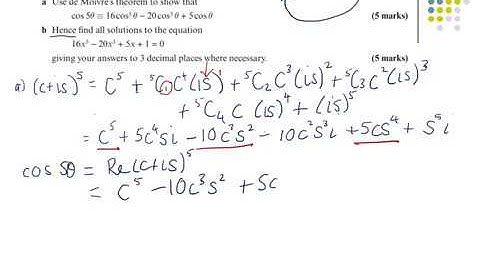 a Use de Moivre's theorem to show that
cos 5θ ≡ 16cos⁵ θ − 20cos³ θ + 5cos θ (5 marks)
b Hence find all solutions to the equation
16x⁵ − 20x³ + 5x + 1 = 0
giving your answers to 3 decimal places where necessary. (5 marks)
a) (c+is)⁵ = c⁵ + ⁵C₁c⁴(is)¹ + ⁵C₂c³(is)² + ⁵C₃c²(is)³
+ ⁵C₄ c (is)⁴ + (is)⁵
= c⁵ + 5c⁴si − 10c³s² − 10c²s³i + 5cs⁴ + s⁵i
cos 5θ = Re(c+is)⁵
= c⁵ − 10c³s² + 5c